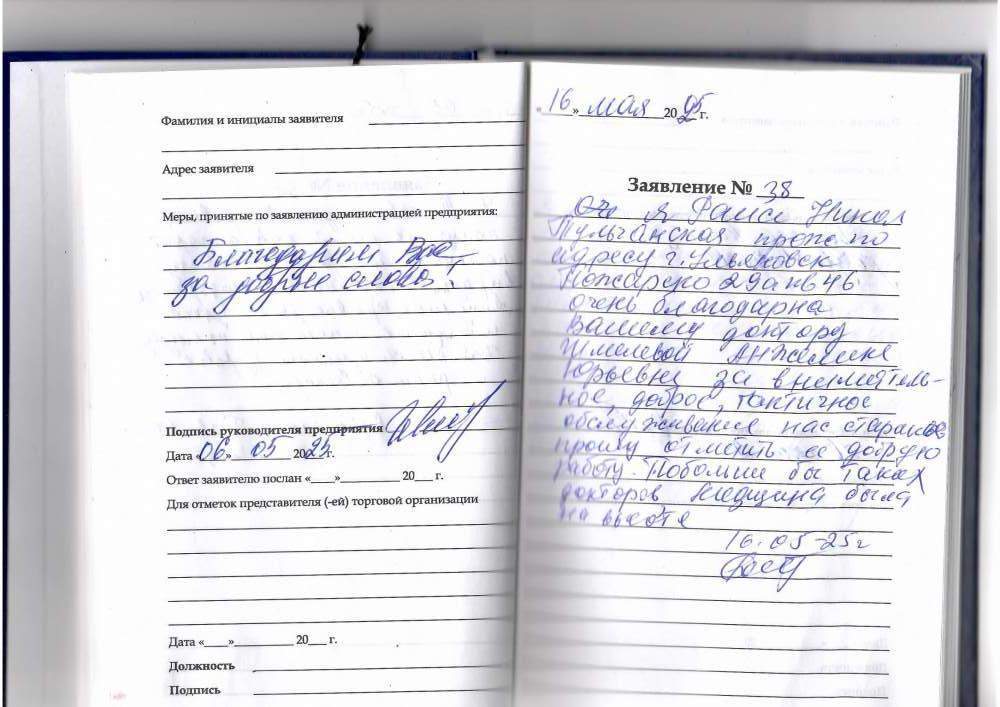 Фамилия и инициалы заявителя
Адрес заявителя
Меры, принятые по заявлению администрацией предприятия:
Благодарим Вас
за добрые слова!
Подпись руководителя предприятия
Дата «06» 05 2025г.
Ответ заявителю послан «___»__________ 20___ г.
Для отметок представителя (-ей) торговой организации
Дата «____»__________ 20___ г.
Должность
Подпись
«16» мая 20 г.
Заявление № 38
я
адресу г. Ульяновск
29а кв 46
очень благодарна
Вашему доктору
Шмелевой Анжелике
Юрьевне за вниматель-
ное, доброе, тактичное
обслуживание нас
прошу отметить ее добрую
работу. Побольше бы таких
докторов, медицина была
на высоте
16.05-25г